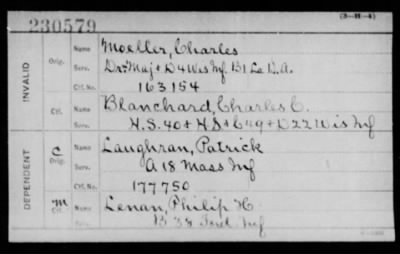 230579
(3-11-4)
INVALID
Orig.
Name Moeller, Charles
Serv. Dr. Maj + D 4 Wis Inf. B 1 L.A.
Ctf. No. 163154
Ctf.
Name Blanchard, Charles C.
Serv. H.S. 40 + H.S + C 49 + D 22 Wis Inf
DEPENDENT
C
Orig.
Name Laughran, Patrick
Serv. A 18 Mass Inf
Ctf. No. 177750
M
Ctf.
Name Lenan, Philip H.
B 38 Ind Inf